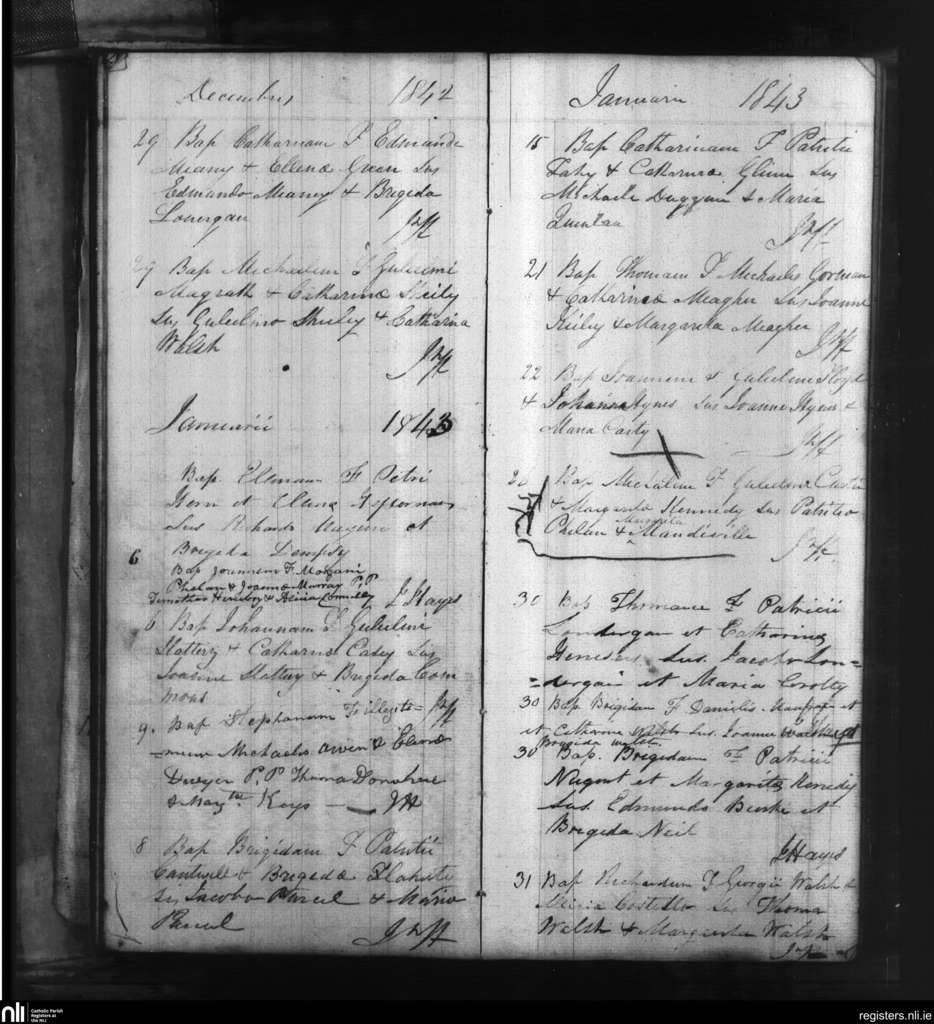 Decembris 1842
29 Bap Catharnam F Edmunde
Meany & Ellena Green Sus
Edmundo Meany & Brigeda
Lonergan
29 Bap Michaelem F Gulielmi
Magrath & Catharina Sheily
Sus Gulielmo Sheeley & Catharina
Walsh
Januarii 1843
Bap Ellenam F Petri
et Ellena Heffernan
Sus Richardo et
Brigeda Dempsy
6 Bap Joannem F. Mariani
Phelan & Joanna Murray P.P
Timotheo & Alicia Connelly J Hayes
6 Bap Johannam F Gulielmi
Slattery & Catharina Casey Sus
Joanne Slattery & Brigeda Com
mons
9. Bap Stephanum F illegite-
=mum Michaelis & Elena
Dwyer P.P Thoma Donohue
& Margta Keys — JH
8 Bap Brigidam F Patritii
Cantwell & Brigeda Flahite
Ss Jacobo Purcel & Maria
Purcel
Januarii 1843
15 Bap Catharinam F Patritii
Fahy & Catharina Glinn Sus
Michaele Duggan & Maria
Quinlan
21 Bap Thomam F Michaelis Gorman
& Catharinæ Meagher Sus Joanne
Kieley & Margareta Meagher
22 Bap Joannem F Gulielmi Floyd
& Johanna Hynes Sus Joanne Hynes &
Maria Carty
Bap Michaelem F Gulielmi
& Margareta Kennedy Sus Patritio
Phelan & Margareta Mandeville
30 Bap Thomam F Patricii
Londergan et Catharina
Sus. Jacobo Lon=
=dergan et Maria Crotty
30 Bap Brigidam F Danielis et
et Catherina Walsh Sus. Joanne Walsh et
Brigeda Walsh
30 Bap. Brigedam F Patricii
Nugent et Margarita Kenedy
Sus. Edmundo Burke et
Brigeda Neil
J Hayes
31 Bap Richardum F Georgii Walsh &
Maria Costello Sus Thoma
Walsh & Margareta Walsh
nli Catholic Parish Registers at the NLI
registers.nli.ie